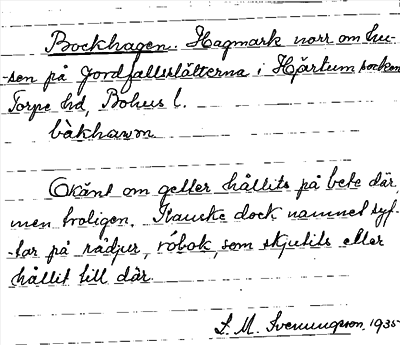 Bockhagen. Hagmark norr om hu-
sen på Jordfallsslätterna i Hjärtum socken
Torpe hd, Bohus l.
bàkhawn
Okänt om getter hållits på bete där,
men troligen. Kanske dock namnet syf-
tar på rådjur, råbok, som skjutits eller
hållit till där.
S. M. Svenungson. 1935